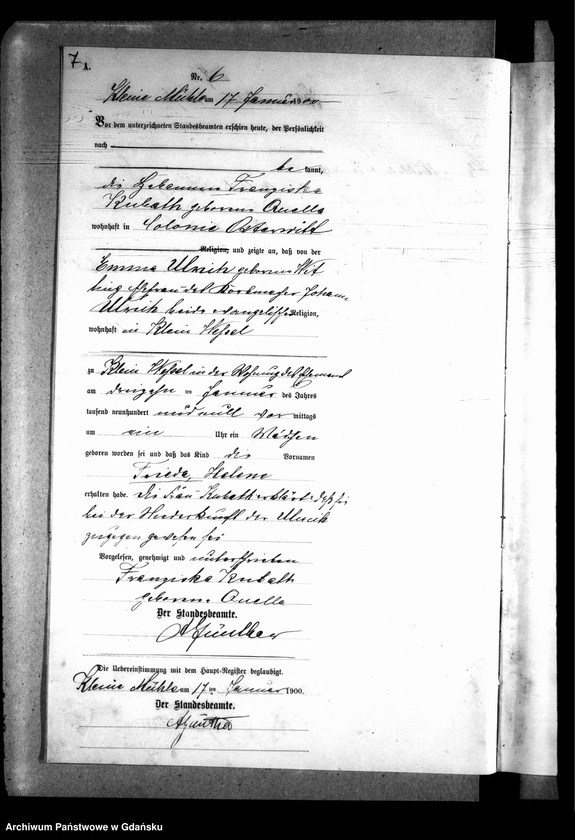 7
A.
Nr. 6
Kleine Mühle am 17 Januar 1900
Vor dem unterzeichneten Standesbeamten erschien heute, der Persönlichkeit
nach
be kannt,
die Hebamme Franziska
Kubath geborene Quella
wohnhaft in Colonie Osterwitt
Religion, und zeigte an, daß von der
Emma Ulrich geborene Wit
ting Ehefrau des Korbmacher Johann
Ulrich beide evangelischer Religion,
wohnhaft in Klein Wessel
zu Klein Wessel in der Wohnung des Ehemann
am dreizehn ten Januar des Jahres
tausend neunhundert und null vor mittags
um ein Uhr ein Mädchen
geboren worden sei und daß das Kind die Vornamen
Frieda, Helene
erhalten habe. Die Frau Kubath erklärte daß sie
bei der Niederkunft der Ulrich
zugegen gewesen sei
Vorgelesen, genehmigt und unterschrieben
Franziska Kubath
geborene Quella
Der Standesbeamte.
A Günther
Die Uebereinstimmung mit dem Haupt-Register beglaubigt.
Kleine Mühle am 17 ten Januar 1900.
Der Standesbeamte.
A Günther
Archiwum Państwowe w Gdańsku